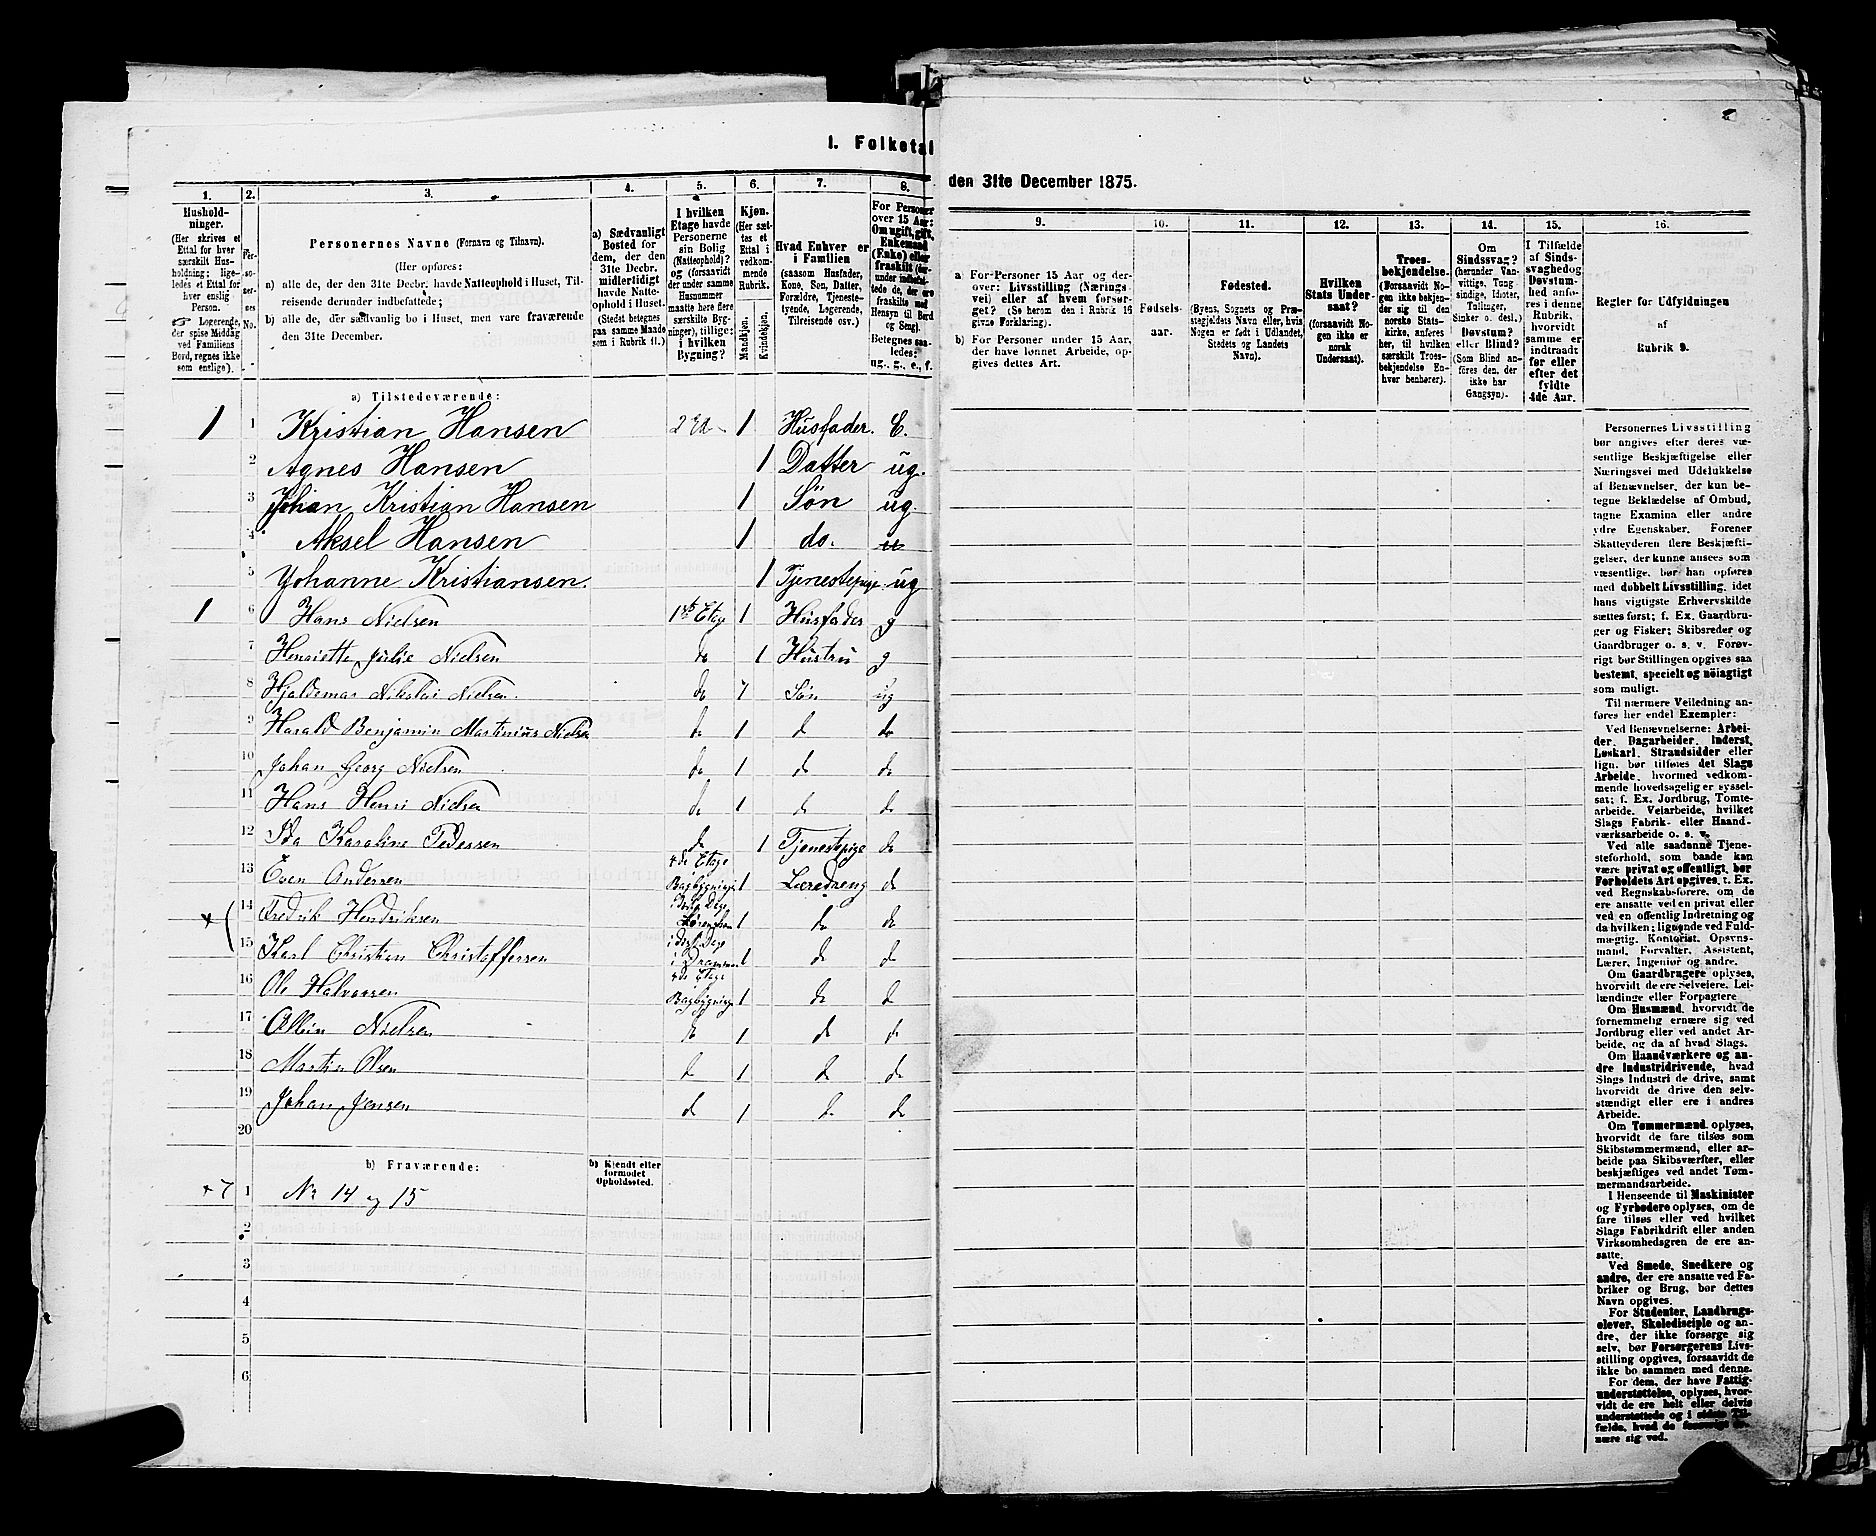 I. Folketal
den 31te December 1875.
1.
Hushold-
ninger.
(Her skrives et
Ettal for hver
særskilt Hus-
holdning; lige-
ledes et Ettal for
hver enslig
Person.
Logerende,
der spise Middag
ved Familiens
Bord, regnes ikke
som enslige).
2.
Per-
so-
ner-
nes
No.
3.
Personernes Navne (Fornavn og Tilnavn).
(Her opføres:
a) alle de, der den 31te Decbr. havde Natteophold i Huset, Til-
reisende derunder indbefattede;
b) alle de, der sædvanlig bo i Huset, men vare fraværende
den 31te December.
4.
a) Sædvanligt
Bosted for
dem, der den
31te Decbr.
midlertidigt
havde Natte-
ophold i Huset.
(Stedet betegnes
paa samme Maade
som i Rubrik 11.)
5.
I hvilken
Etage havde
Personerne
sin Bolig
(Natteophold)?
og (forsaavidt
der under samme
Husnummer
maatte høre flere
særskilte Byg-
ninger), tillige:
i hvilken
Bygning?
6.
Kjøn.
(Her sæt-
tes et
Ettal i
vedkom-
mende
Rubrik.
Mandkjøn.
Kvindekjøn.
7.
Hvad Enhver er
i Familien
(saasom Husfader,
Kone, Søn, Datter,
Forældre, Tjeneste-
tyende, Logerende,
Tilreisende osv.)
8.
For Personer
over 15 Aar:
Om ugift, gift,
Enkemand
(Enke) eller
fraskilt
Betegnes saa-
ledes:
ug., g., e., f.
9.
a) For Personer 15 Aar og der-
over: Livsstilling (Nærings-
vei) eller af hvem forsør-
get? (Se herom den i Rubrik 16
givne Forklaring).
b) For Personer under 15 Aar,
der have lønnet Arbeide, op-
gives dettes Art.
10.
Fødsels-
aar.
11.
Fødested.
(Byens, Sognets og Præ-
stegjeldets Navn eller, hvis
Nogen er født i Udlandet,
Stedets og Landets
Navn).
12.
Hvilken
Stats Under-
saat?
(forsaavidt No-
gen ikke er
norsk
Undersaat).
13.
Troes-
bekjendelse.
(Forsaavidt No-
gen ikke bekjen-
der sig til den
norske Stats-
kirke, anføres
her, til hvilken
særskilt Troes-
bekjendelse En-
hver henhører).
14.
Om
Sindssvag?
(herunder Van-
vittige, Tung-
sindige, Idioter,
Tullinger,
Sinker o. desl.)
Døvstum?
eller Blind?
(Som Blind an-
føres den, der
ikke har
Gangsyn).
15.
I Tilfælde
af Sinds-
svaghed og
Døvstum-
hed anfø-
res i denne
Rubrik,
hvorvidt
samme er
indtraadt
før eller
efter det
fyldte
4de Aar.
16.
Regler for Udfyldningen
af
Rubrik 9.
a) Tilstedeværende:
1 1 Kristian Hansen 2 Et. 1 Husfader. E.
2 Agnes Hansen 1 Datter ug.
3 Johan Kristian Hansen 1 Søn ug.
4 Aksel Hansen 1 do.
5 Johanne Kristiansen. 1 Tjenestepige ug
1 6 Hans Nielsen 1ste Etage 1 Husfader g
7 Henriette Julie Nielsen do 1 Hustru g
8 Hjaldemar Nikolai Nielsen. do 1 Søn ug
9 Harald Benjamin Martinius Nielsen do 1 do do
10 Johan Georg Nielsen do 1 do do
11 Hans Henri Nielsen do 1 do do
12 Ida Karoline Pedersen do 1 Tjenestepige do
13 Even Andersen 4de Etage Bagbygningen 1 Læredreng do
14 Fredrik Hendriksen 1 do do
15 Karl Christian Christoffersen i Drammen 1 do do
16 Ole Halvorsen 4de Etage Bagbygningen 1 do do
17 Nielsen do 1 do do
18 Martin Olsen do 1 do do
19 Johan Jensen do 1 do do
20
b) Fraværende:
b) Kjendt eller
formodet
Opholdssted.
1 No 14 og 15
2
3
4
5
6
Personernes Livsstilling
bør angives efter deres væ-
sentlige Beskjæftigelse eller
Næringsvei med Udelukkelse
af Benævnelser, der kun be-
tegne Beklædelse af Ombud,
tagne Examina eller andre
ydre Egenskaber. Forener
Skatteyderen flere Beskjæfti-
gelser, der kunne ansees som
væsentlige, bør han opføres
med dobbelt Livsstilling, idet
hans vigtigste Erhvervskilde
sættes først; f. Ex. Gaardbru-
ger og Fisker; Skibsreder og
Gaardbruger o. s. v. Forøv-
rigt bør Stillingen opgives saa
bestemt, specielt og nøiagtigt
som muligt.
Til nærmere Veiledning an-
føres her endel Exempler:
Ved Benævnelserne: Arbei-
der, Dagarbeider, Inderst,
Løskarl, Strandsidder eller
lign. bør tilføies det Slags
Arbeide, hvormed vedkom-
mende hovedsagelig er syssel-
sat; f. Ex. Jordbrug, Tomte-
arbeide, Veiarbeide, hvilket
Slags Fabrik- eller Haand-
værksarbeide o. s. v.
Ved alle saadanne Tjene-
steforhold, som baade kan
være privat og offentligt, bør
Forholdets Art opgives, t. Ex.
ved Regnskabsførere, om de
ere ansatte ved en privat eller
ved en offentlig Indretning og
da hvilken; lignende ved Fuld-
mægtig, Kontorist, Opsyns-
mand, Forvalter, Assistent,
Lærer, Ingeniør og andre.
Om Gaardbrugere oplyses,
hvorvidt de ere Selveiere, Lei-
lændinge eller Forpagtere
Om Husmænd, hvorvidt de
fornemmelig ernære sig ved
Jordbrug eller ved andet Ar-
beide, og da af hvad Slags.
Om Haandværkere og an-
dre Industridrivende, hvad
Slags Industri de drive, samt
hvorvidt de drive den selv-
stændigt eller ere i andres
Arbeide.
Om Tømmermænd oplyses,
hvorvidt de fare tilsøs som
Skibstømmermænd, eller ar-
beide paa Skibsværfter, eller
beskjæftiges ved andet Tøm-
mermandsarbeide.
I Henseende til Maskinister
og Fyrbødere oplyses, om de
fare tilsøs eller ved hvilket
Slags Fabrikdrift eller anden
Virksomhedsgren de ere an-
satte.
Ved Smede, Snedkere og
andre, der ere ansatte ved Fa-
briker og Brug, bør dettes
Navn opgives.
For Studenter, Landbrugs-
elever, Skoledisciple og an-
dre, der ikke forsørge sig
selv, bør Forsørgerens Livs-
stilling opgives, forsaavidt de
ikke bo sammen med denne.
For dem, der have Fattig-
understøttelse, oplyses, hvor-
vidt de ere helt eller delvis
understøttede og i sidste Til-
fælde, hvad de forøvrigt er-
nære sig ved.